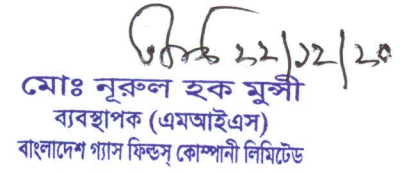 ২২/১২/২০
মোঃ নূরুল হক মুন্সী
ব্যবস্থাপক (এমআইএস)
বাংলাদেশ গ্যাস ফিল্ডস্ কোম্পানী লিমিটেড